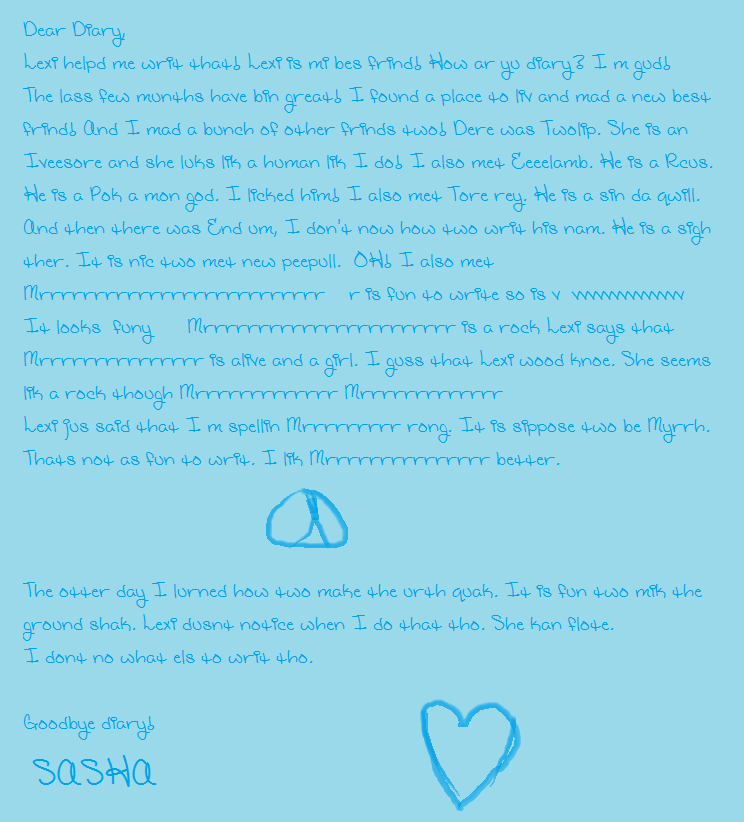 Dear Diary,
Lexi helpd me writ that! Lexi is mi bes frind! How ar yu diary? I m gud!
The lass few munths have bin great! I found a place to liv and mad a new best
frind! And I mad a bunch of other frinds two! Dere was Twolip. She is an
Iveesore and she luks lik a human lik I do! I also met Eeeelamb. He is a Rcus.
He is a Pok a mon god. I licked him! I also met Tore rey. He is a sin da quill.
And then there was End um, I don't now how two writ his nam. He is a sigh
ther. It is nic two met new peepull. OH! I also met
Mrrrrrrrrrrrrrrrrrrrrrrrrrr r is fun to write so is v vvvvvvvvvvvvvvvvvv
It looks funy Mrrrrrrrrrrrrrrrrrrrrrrr is a rock Lexi says that
Mrrrrrrrrrrrrrrr is alive and a girl. I guss that Lexi wood knoe. She seems
lik a rock though Mrrrrrrrrrrrrr Mrrrrrrrrrrrrr
Lexi jus said that I m spellin Mrrrrrrrrr rong. It is sippose two be Myrrh.
Thats not as fun to writ. I lik Mrrrrrrrrrrrrrrr better.
The otter day I lurned how two make the urth quak. It is fun two mik the
ground shak. Lexi dusnt notice when I do that tho. She kan flote.
I dont no what els to writ tho.
Goodbye diary!
SASHA